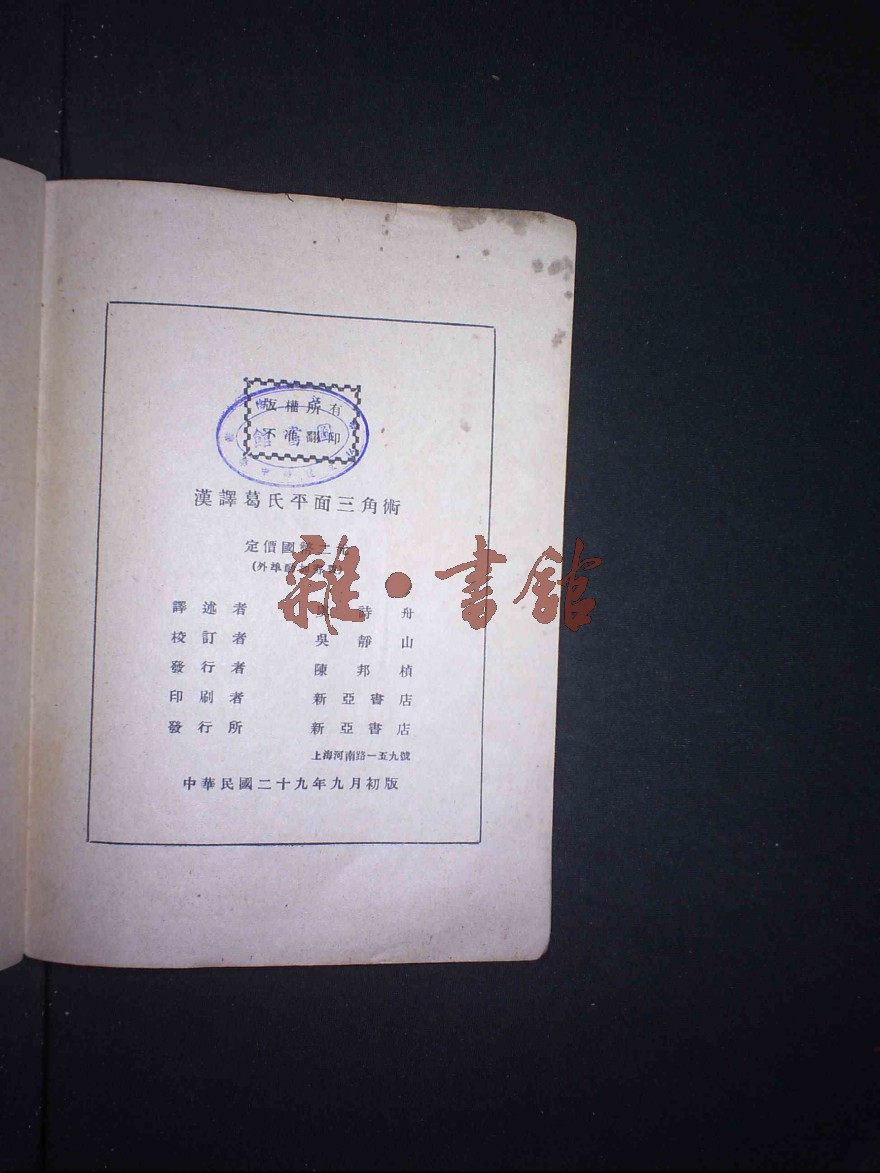 版權所有
不准翻印
圖書館
漢譯葛氏平面三角術
定價國幣
雜·書館
譯述者 詩舟
校訂者 吳靜山
發行者 陳邦楨
印刷者 新亞書店
發行所 新亞書店
上海河南路一五九號
中華民國二十九年九月初版